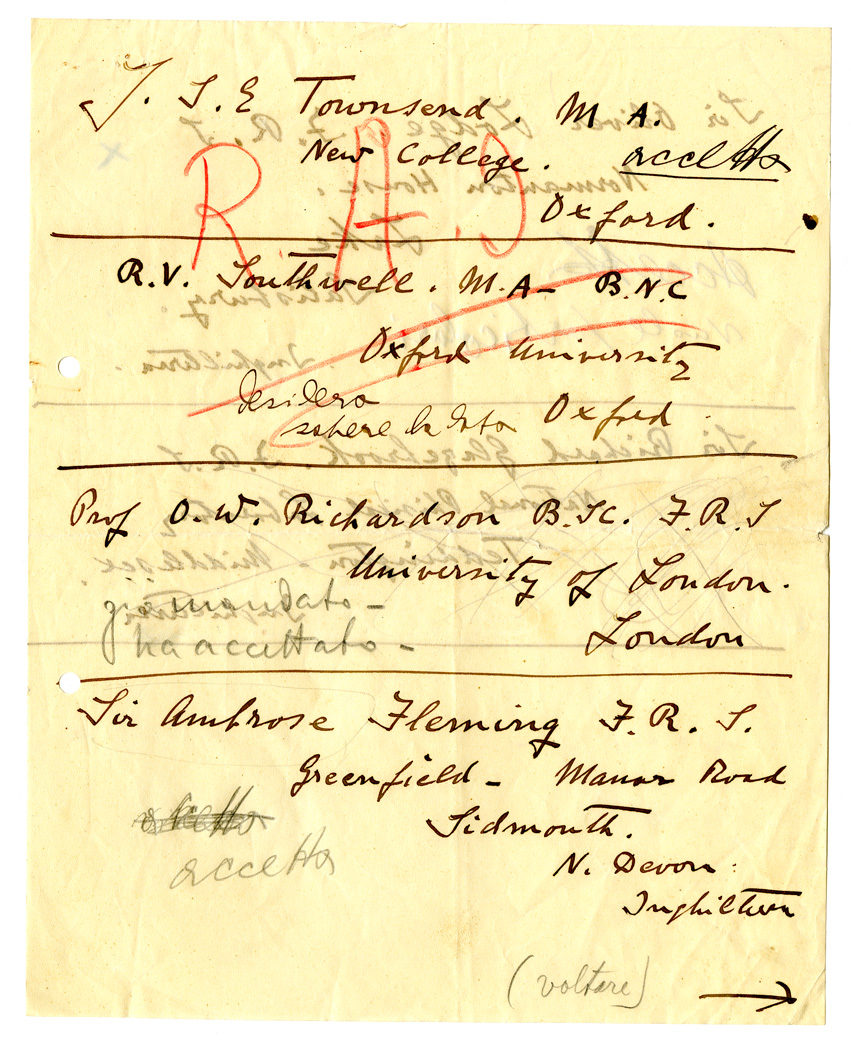 J. S. E Townsend. M A.
New College. accetta
Oxford.
R A D
R.V. Southwell. M.A - B.N.C
Oxford University
desidero
sapere la data Oxford.
Prof O. W. Richardson B.Sc. F.R.S
University of London.
già mandato -
ha accettato -
London
Sir Ambrose Fleming F.R.S.
Greenfield - Manor Road
accetta
Sidmouth.
accetta
N. Devon.
Inghilterra
(voltare)